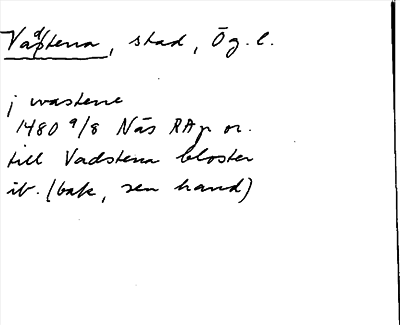 Vadstena, stad, Ög. l.
j wastene
1480 9/8 Näs RAp or.
till Vadstena kloster
ib. (bak, sen hand)